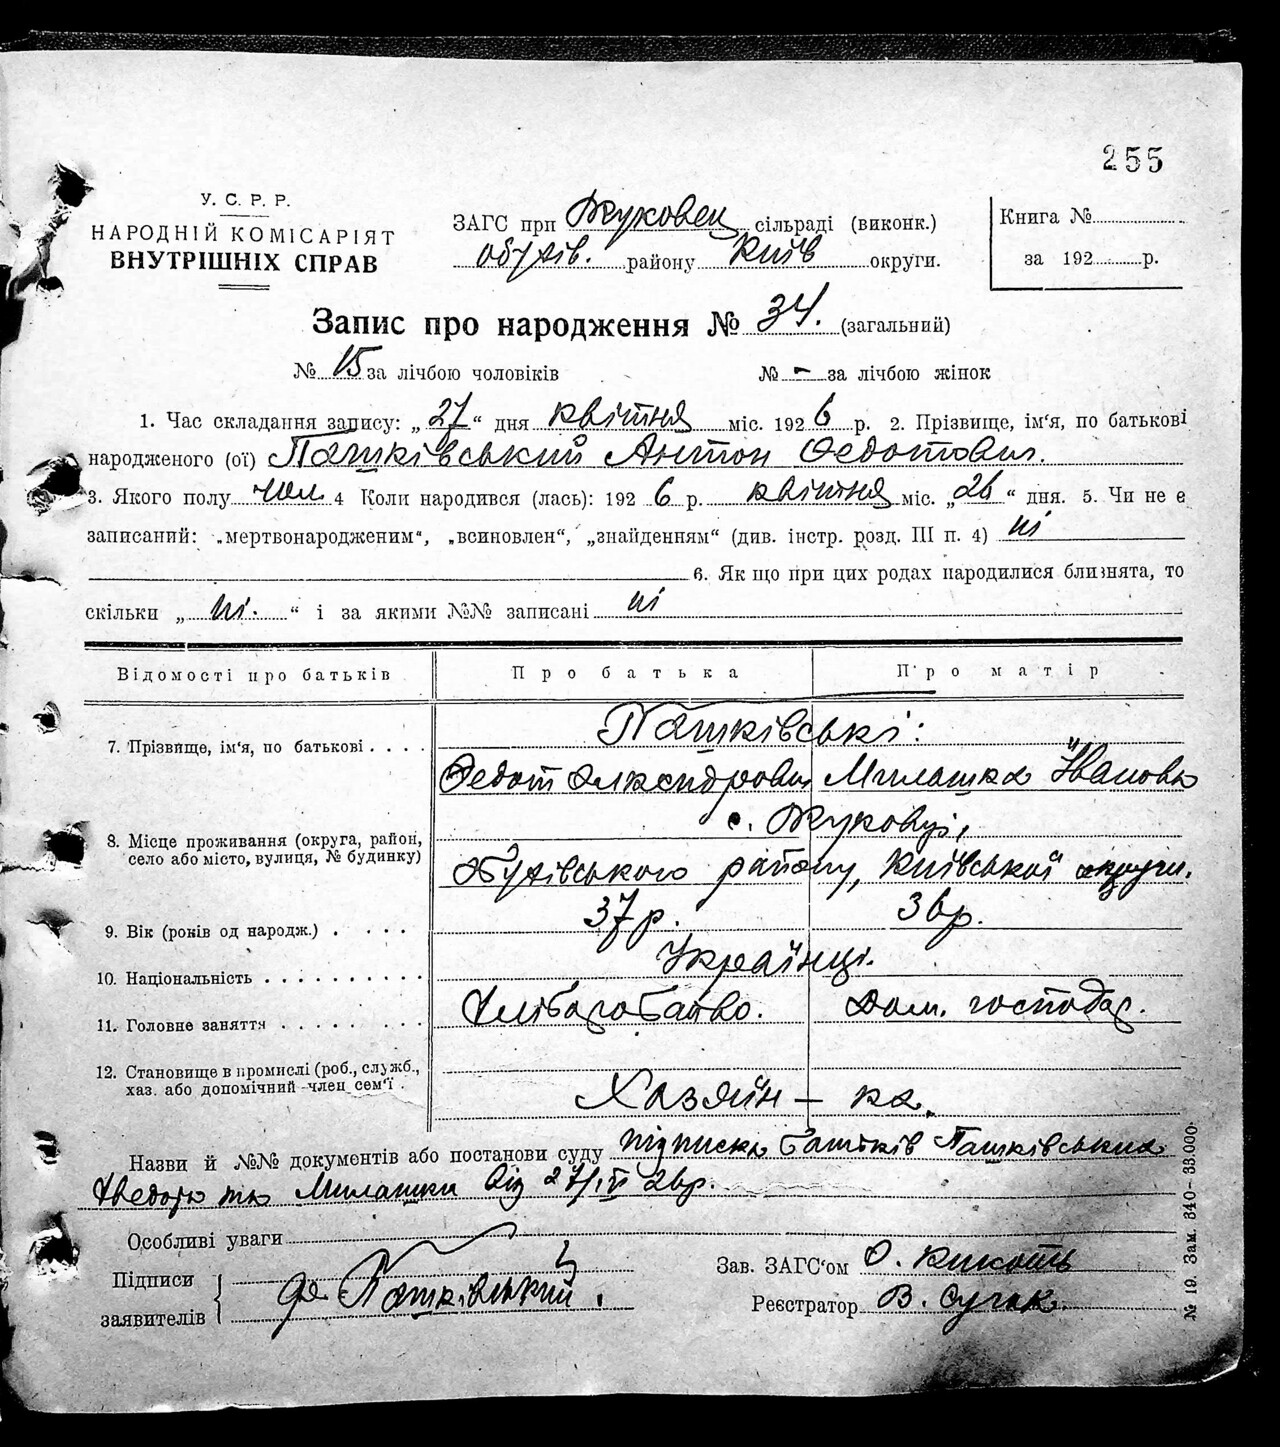 255
У. С. Р. Р.
НАРОДНІЙ КОМІСАРІЯТ
ВНУТРІШНІХ СПРАВ
ЗАГС при Жуковец сільраді (виконк.)
Обухів. району Київ округи.
Книга №
за 192 р.
Запис про народження № 34. (загальний)
№ 15 за лічбою чоловіків № - за лічбою жінок
1. Час складання запису: „27“ дня квітня міс. 1926 р. 2. Прізвище, ім'я, по батькові
народженого (ої) Пашківський Антон Федотович.
3. Якого полу чол. 4 Коли народився (лась): 1926 р. квітня міс. „26“ дня. 5. Чи не є
записаний: „мертвонародженим“, „всиновлен“, „знайденням“ (див. інстр. розд. III п. 4) ні
6. Як що при цих родах народилися близнята, то
скільки „ні.“ і за якими №№ записані ні
Відомості про батьків Про батька Про матір
7. Прізвище, ім'я, по батькові . . . . Пашківські:
Федот Олександрович Милашка Івановна
с. Жуковці,
8. Місце проживання (округа, район,
село або місто, вулиця, № будинку)
Обухівського району, Київської округи.
9. Вік (років од народж.) . . . . 37 р. 36 р.
10. Національність . . . . . . . . . . Українці.
11. Головне заняття . . . . . . . . . Хліборобство. Дом. господар.
12. Становище в промислі (роб., служб.,
хаз. або допомічний член сем'ї .
Хазяїн — ка.
Назви й №№ документів або постанови суду підписка батьків Пашківських
та Милашки від 27/IV 26 р.
Особливі уваги
Підписи
заявителів
Пашківський.
Зав. ЗАГС'ом О.
Реєстратор В.
№ 19. Зам. 340—33.000.